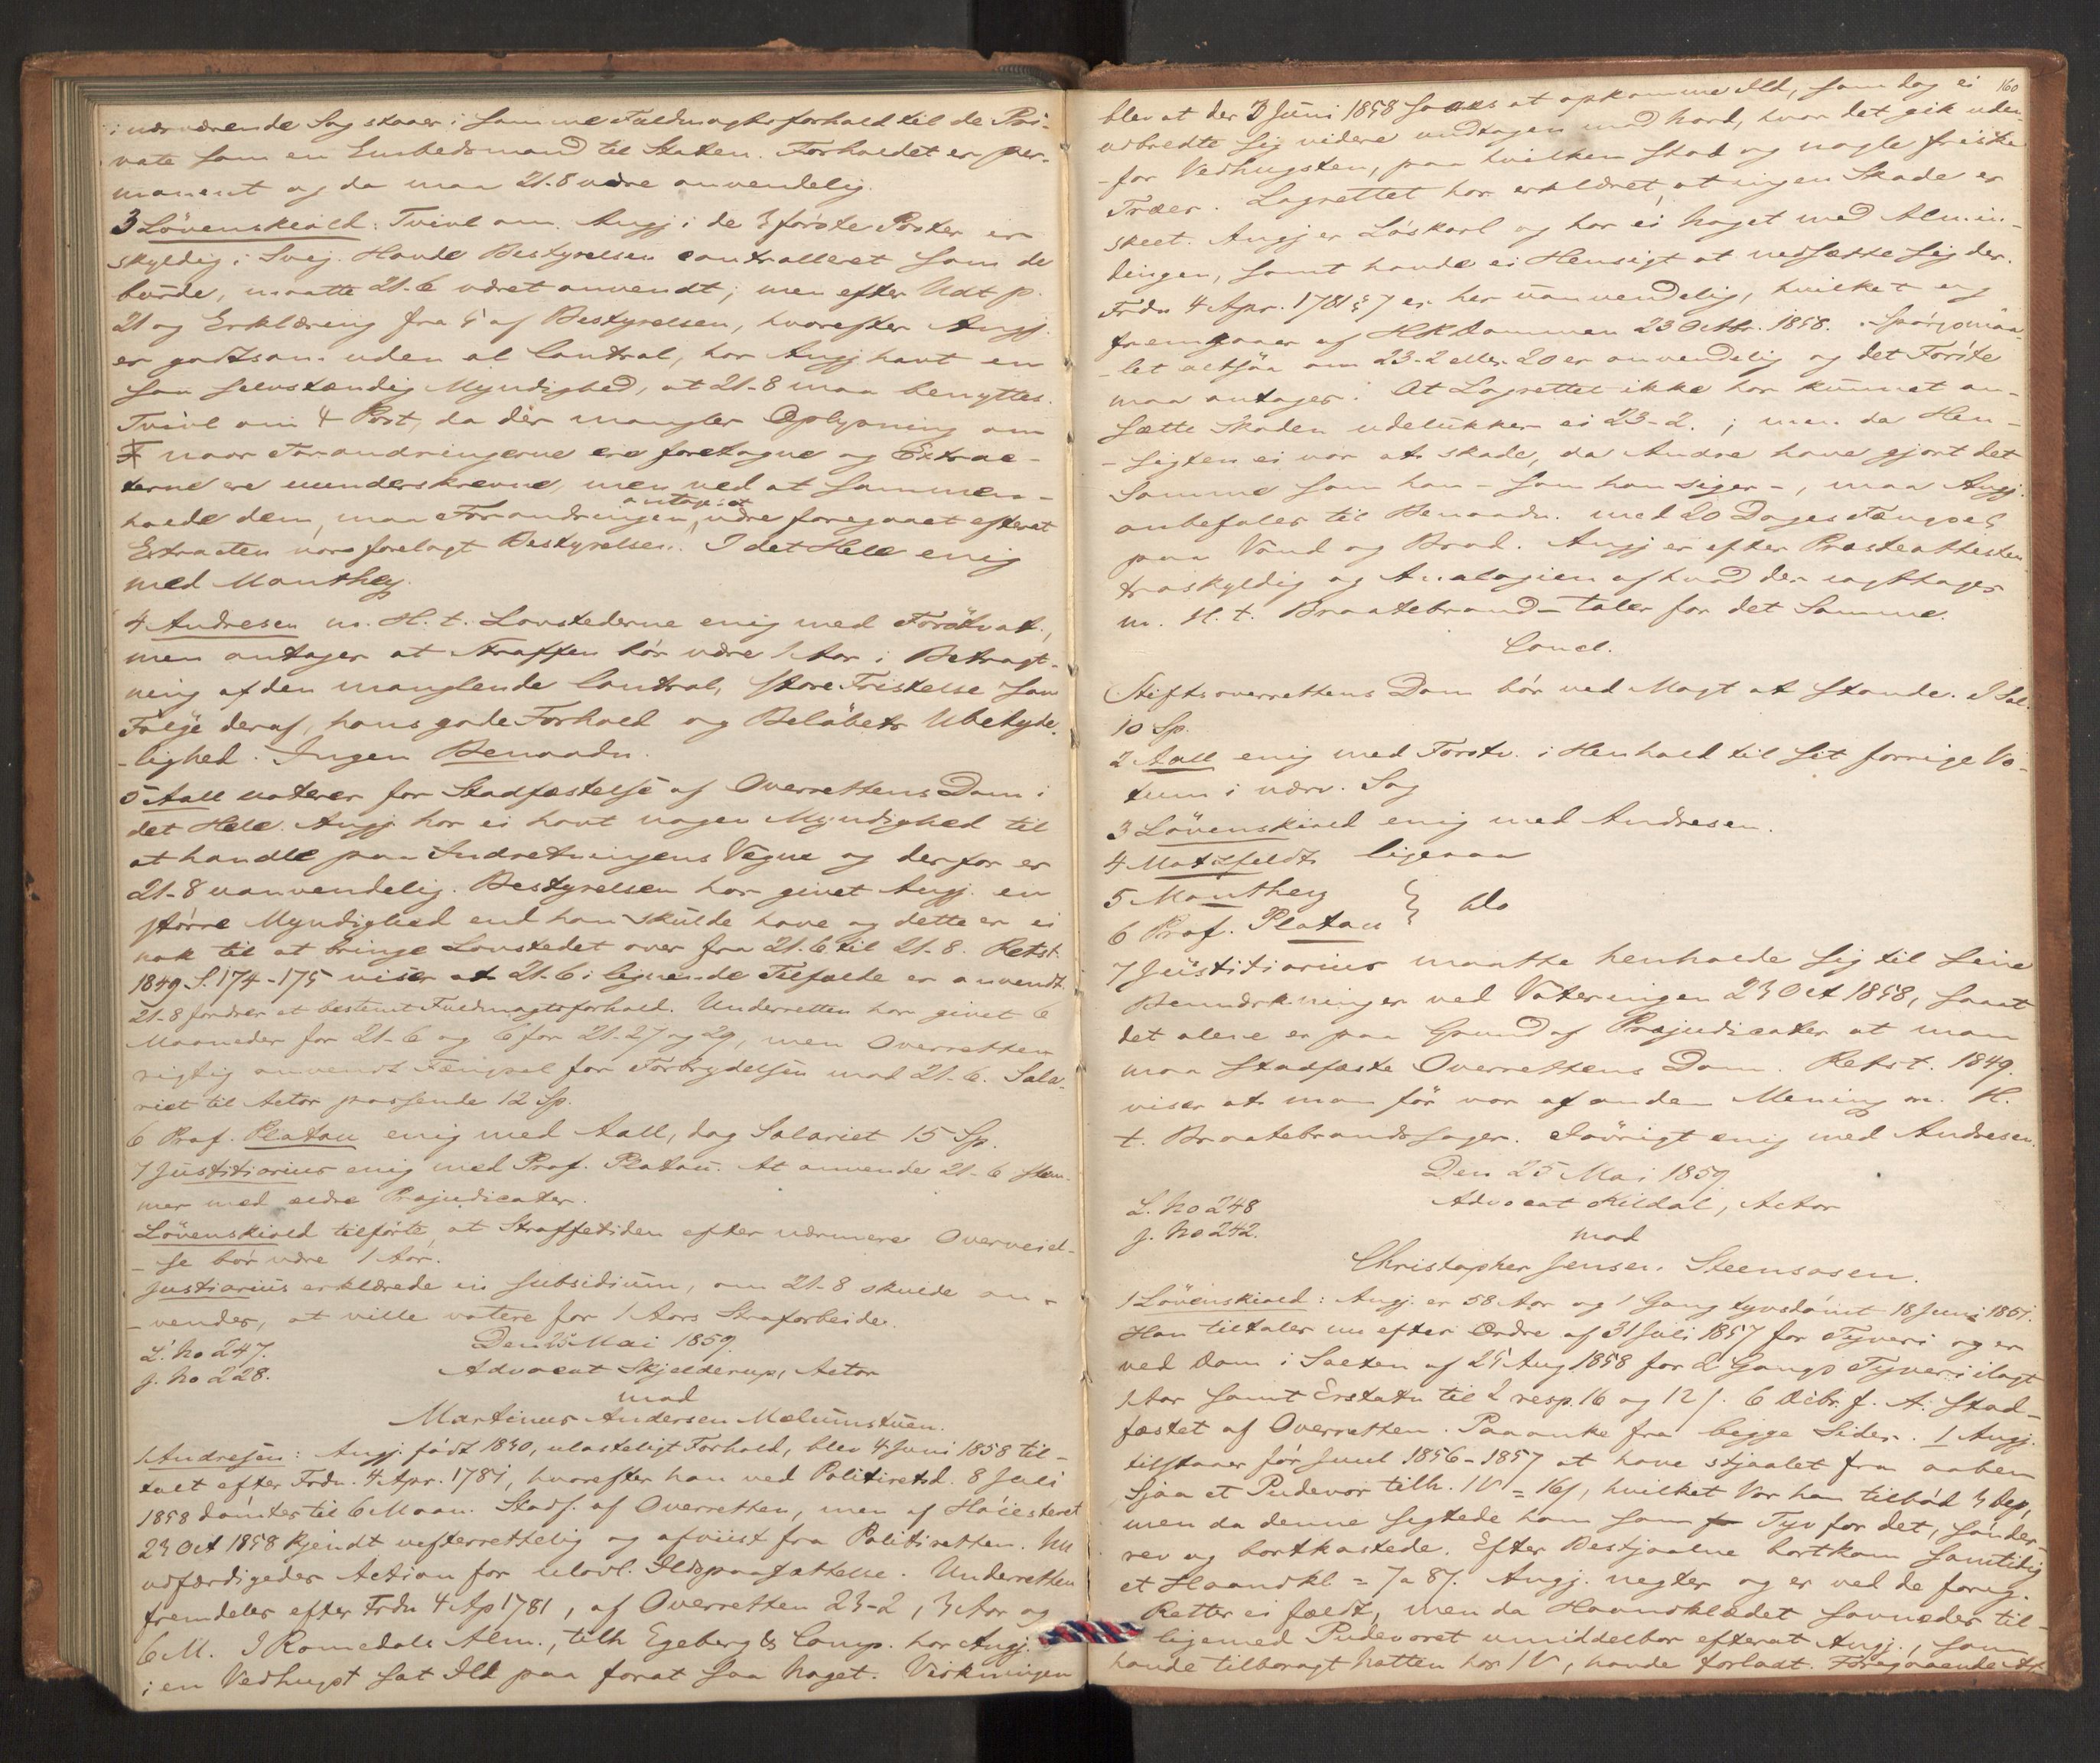 i nærværende Sag staaer i samme Fuldmagtsforhold til de Pri-
vate som en Embedsmand til Staten. Forholdet er per-
manent og da maa 21-8 være anvendelig.
3 Lövenskiold: Tvivl om Angj. i de 3 förste Poster er
skyldig i Svig. Havde Bestyrelsen controlleret som de
burde, maatte 21-6 været anvendt; men efter Udt p.
21 og Erklæring fra 5 af Bestyrelsen, hvorefter Angj.
er godtsom uden al Control, har Angj havt en
saa selvstændig Myndighed, at 21-8 maa benyttes.
Tvivl om 4 Post, da der mangler Oplysning om
naar Forandringerne ere foretagne og Extrac-
terne ere underskrevne, men ved at sammen-
holde dem, maa Forandringen antages at være foregaaet efterat
Extracten var forelagt Bestyrelsen. I det Hele enig
med Manthey.
4 Andresen m. H. t. Lovstederne enig med Förstvot.,
men antager at Straffen bör være 1 Aar i Betragt-
ning af den manglende Control, store Fristelse som
Fölge deraf, hans gode Forhold og Belöbets Ubetyde-
-lighed. Ingen Benaadn.
5 Aall voterer for Stadfæstelse af Overrettens Dom i
det Hele. Angj. har ei havt nogen Myndighed til
at handle paa Indretningens Vegne og derfor er
21-8 uanvendelig. Bestyrelsen har givet Angj. en
större Myndighed end han skulde have og dette er ei
nok til at bringe Lovstedet over fra 21-6 til 21-8. Retst.
1849 S. 174-175 viser at 21-6 i lignende Tilfælde er anvendt.
21-8 fordrer et bestemt Fuldmagtsforhold. Underretten har givet 6
Maaneder for 21-6 og 6 for 21-27 og 29, men Overretten
rigtig anvendt Fængsel for Forbrydelsen mod 21-6. Sala-
riet til Actor passende 12 Sp.
6 Prof. Platou enig med Aall, dog Salariet 15 Sp.
7 Justitiarius enig med Prof. Platou. At anvende 21-6 stem-
mer med ældre Præjudicater.
Lövenskiold tilförte, at Straffetiden efter nærmere Overveiel-
-se bör være 1 Aar.
Justiarius erklærede in subsidium, om 21-8 skulde an-
-vendes, at ville votere for 1 Aars Strafarbeide.
L. No 247. Den 25 Mai 1859.
J. No 228. Advocat Skjelderup, Actor
mod
Martinus Andersen Mælumstuen.
1 Andresen: Angj. födt 1830, ulasteligt Forhold, blev 4 Juni 1858 til-
talt efter Frdn. 4 Apr. 1781, hvorefter han ved Politiretsd. 8 Juli
1858 dömtes til 6 Maan. Stadf. af Overretten, men af Höiesteret
23 Oct 1858 kjendt uefterrettelig og afviist fra Politiretten. Nu
udfærdigedes Action for ulovl. Ildspaasættelse. Underretten
fremdeles efter Frdn 4 Ap 1781, af Overretten 23-2, 3 Aar og
6 M. I Romedals Alm., tilh Egeberg & Comp. har Angj.
i en Vedhugst sat Ild paa forat saa Noget. Virkningen
160
blev at der 3 Juni 1858 saaes at opkomme Ild, som dog ei
udbredte sig videre undtagen mod Nord, hvor det gik uden-
-for Vedhugsten, paa hvilken stod og nogle friske
Træer. Lagrettet har erklæret, at ingen Skade er
skeet. Angj er Löskarl og har ei Noget med Almin-
dingen, samt havde ei Hensigt at nedsætte sig der.
Frdn 4 Apr. 1781 § 7 er her uanvendelig, hvilket og
fremgaaer af HRdommen 23 Octbr. 1858. Spörgsmaa-
-let altsaa om 23-2 eller 20 er anvendelig og det Förste
maa antages. At Lagrettet ikke har kunnet an-
sætte Skaden udelukker ei 23-2.; men da Hen-
-sigten ei var at skade, da Andre have gjort det
Samme som han - som han siger -, maa Angj.
anbefales til Benaadn. med 20 Dages Fængsel
paa Vand og Bröd. Angj er efter Præsteattesten
troskyldig og Analogien af hvad der iagttages
m. H. t. Braatebrand - taler for det Samme.
Concl.
Stiftsoverrettens Dom bör ved Magt at stande. I Sal.
10 Sp.
2 Aall enig med Förstv. i Henhold til sit forrige Vo-
tum i nærv. Sag
3 Lövenskiold enig med Andresen.
4 Motzfeldt ligesaa
5 Manthey
6 Prof. Platou } do
7 Justitiarius maatte henholde sig til sine
Bemærkninger ved Voteringen 23 Oct 1858, saaat
det alene er paa Grund af Præjudicater at man
maa stadfæste Overrettens Dom. Retst. 1849.
viser at man för var af anden Mening m. H.
t. Braatebrandssager. Iövrigt enig med Andresen.
Den 25 Mai 1859
L. No 248 Advocat Kildal, Actor
J. No 242. mod
Christopher Jensen Steensosen.
1 Lövenskiold: Angj. er 58 Aar og 1 Gang tyvsdömt 18 Juni 1851.
Han tiltales nu efter Ordre af 31 Juli 1857 for Tyveri og er
ved Dom i Salten af 25 Aug 1858 for 2 Gangs Tyveri ilagt
1 Aar samt Erstatn til 2 resp. 16 og 12 s. 6 Decbr. f. A. stad-
fæstet af Overretten. Paaanke fra begge Sider. 1 Angj.
tilstaaer för Juul 1856-1857 at have stjaalet fra aaben
Sjaa et Pudevor tilh. 1 V = 16 s, hvilket Vor han tilböd 3 Dep,
men da denne sigtede ham som Tyv for det, sönder-
rev og bortkastede. Efter Bestjaalne bortkom samtidig
et Haandkl = 7 a 8 s. Angj. negter og er ved de foreg.
Retter ei fældt, men da Haandklædet savnedes til-
ligemed Pudevoret umiddelbar efterat Angj., som
havde tilbragt Natten hos 1 V, havde forladt.